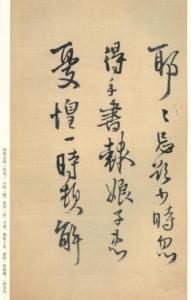 耶〻忌欲少時忽
得手書報娘子患
憂惶一時頓解